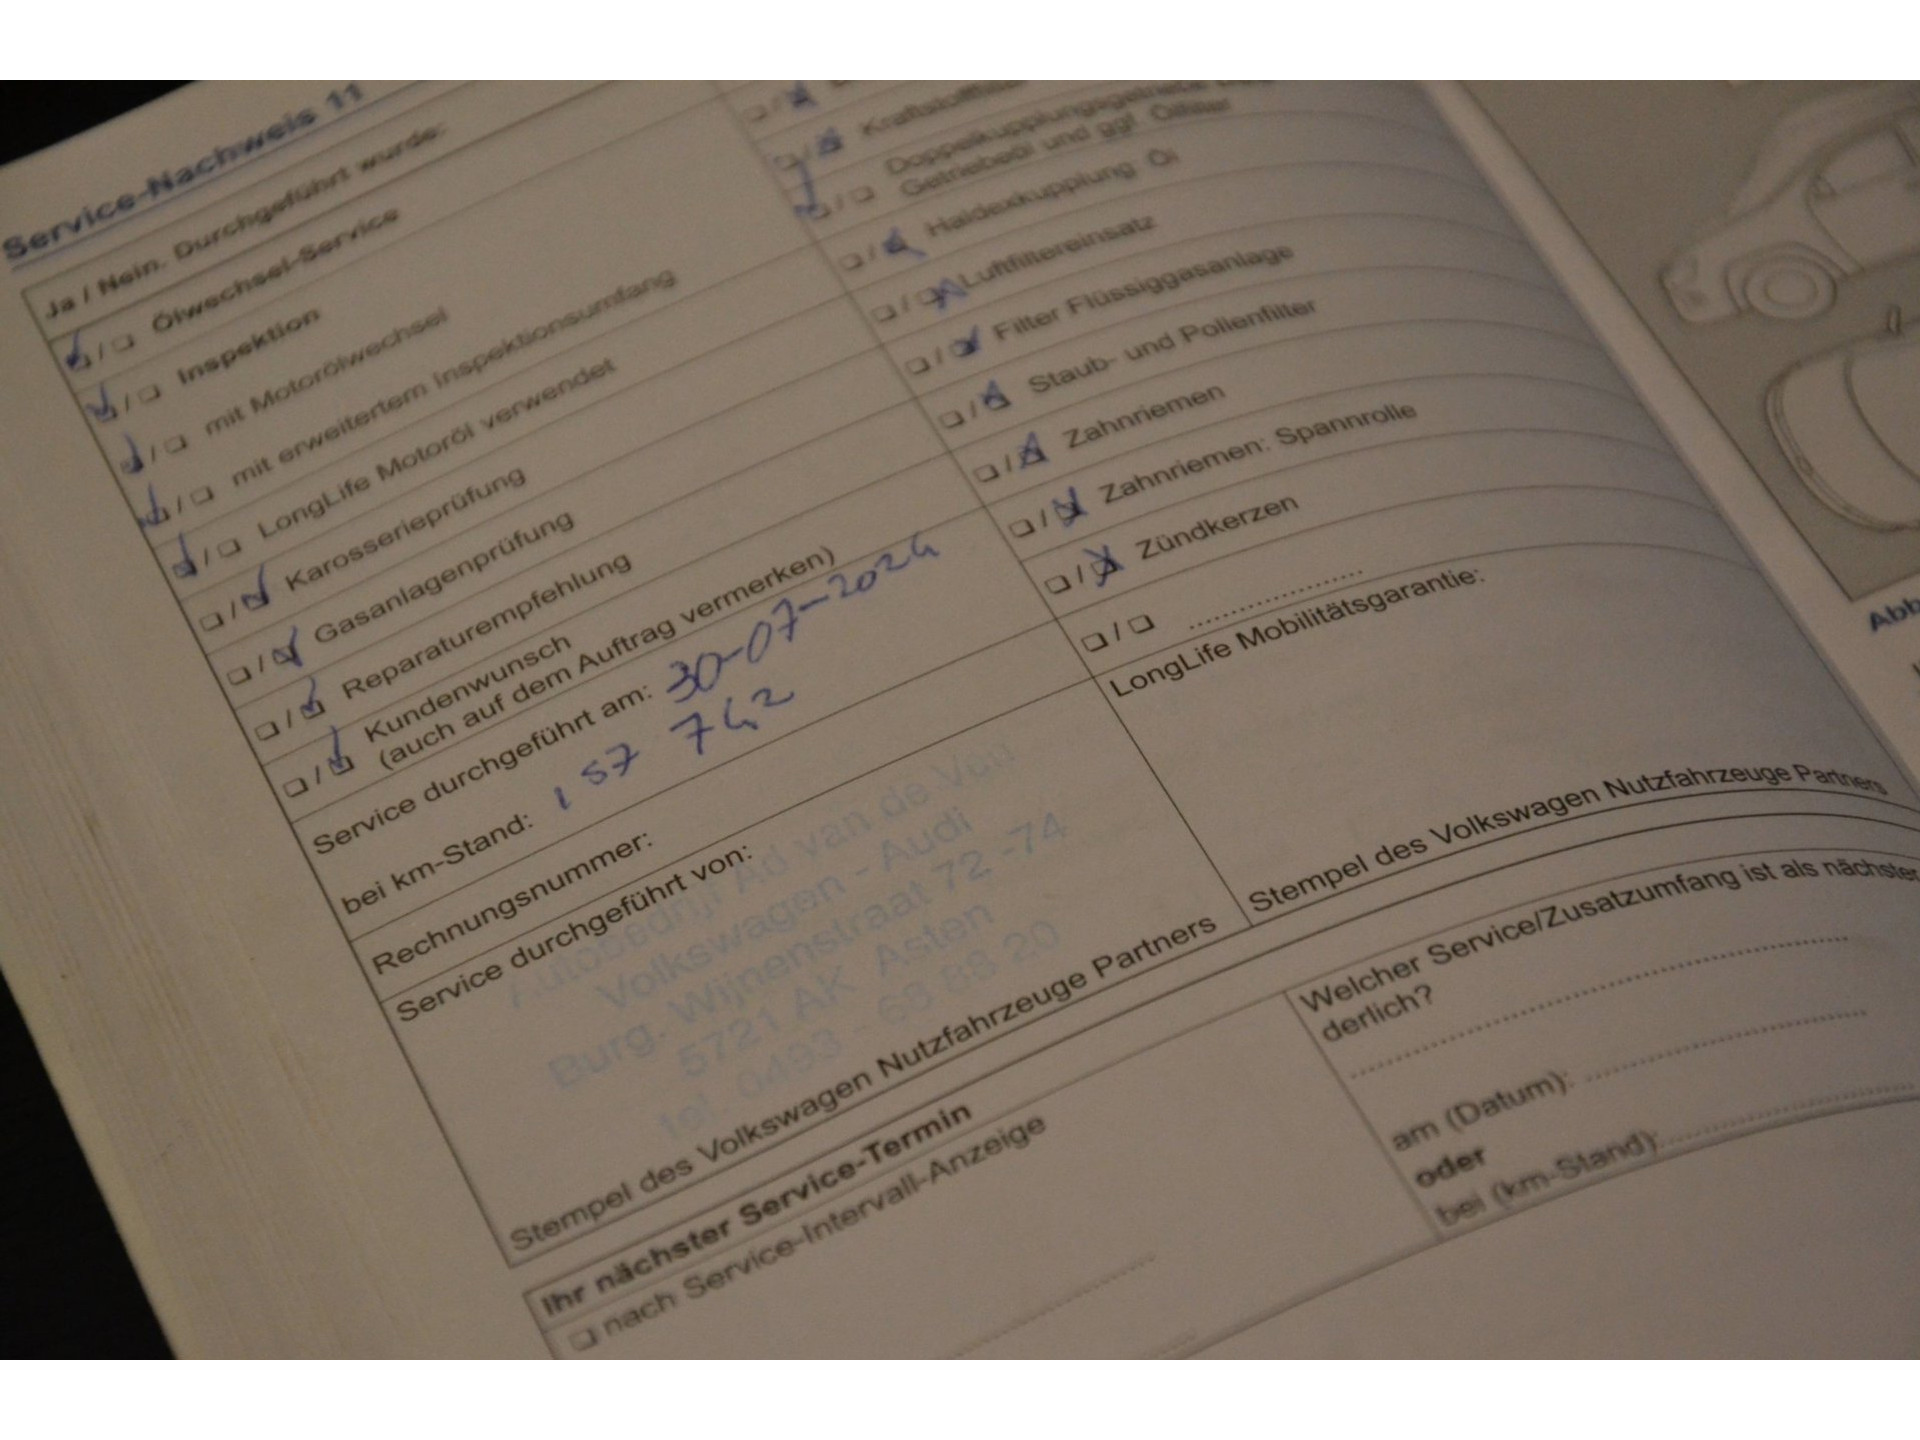 Service-Nachweis 11
Ja / Nein. Durchgeführt wurde:
Ölwechsel-Service
Inspektion
mit Motorölwechsel
mit erweitertem Inspektionsumfang
LongLife Motoröl verwendet
Karosserieprüfung
Gasanlagenprüfung
Reparaturempfehlung
Kundenwunsch
(auch auf dem Auftrag vermerken)
Service durchgeführt am: 30-07-2024
bei km-Stand: 157 742
Rechnungsnummer:
Service durchgeführt von:
Autobedrijf Ad van de Ven
Volkswagen - Audi
Burg. Wijnenstraat 72 -74
5721 AK Asten
tel. 0493 - 68 88 20
Stempel des Volkswagen Nutzfahrzeuge Partners
Doppelkupplungsgetriebe
Getriebeöl und ggf. Ölfilter
Haldexkupplung Öl
Luftfiltereinsatz
Filter Flüssiggasanlage
Staub- und Pollenfilter
Zahnriemen
Zahnriemen: Spannrolle
Zündkerzen
LongLife Mobilitätsgarantie:
Stempel des Volkswagen Nutzfahrzeuge Partners
Ihr nächster Service-Termin
nach Service-Intervall-Anzeige
Welcher Service/Zusatzumfang ist als nächster
derlich?
am (Datum):
oder
bei (km-Stand):
Abb